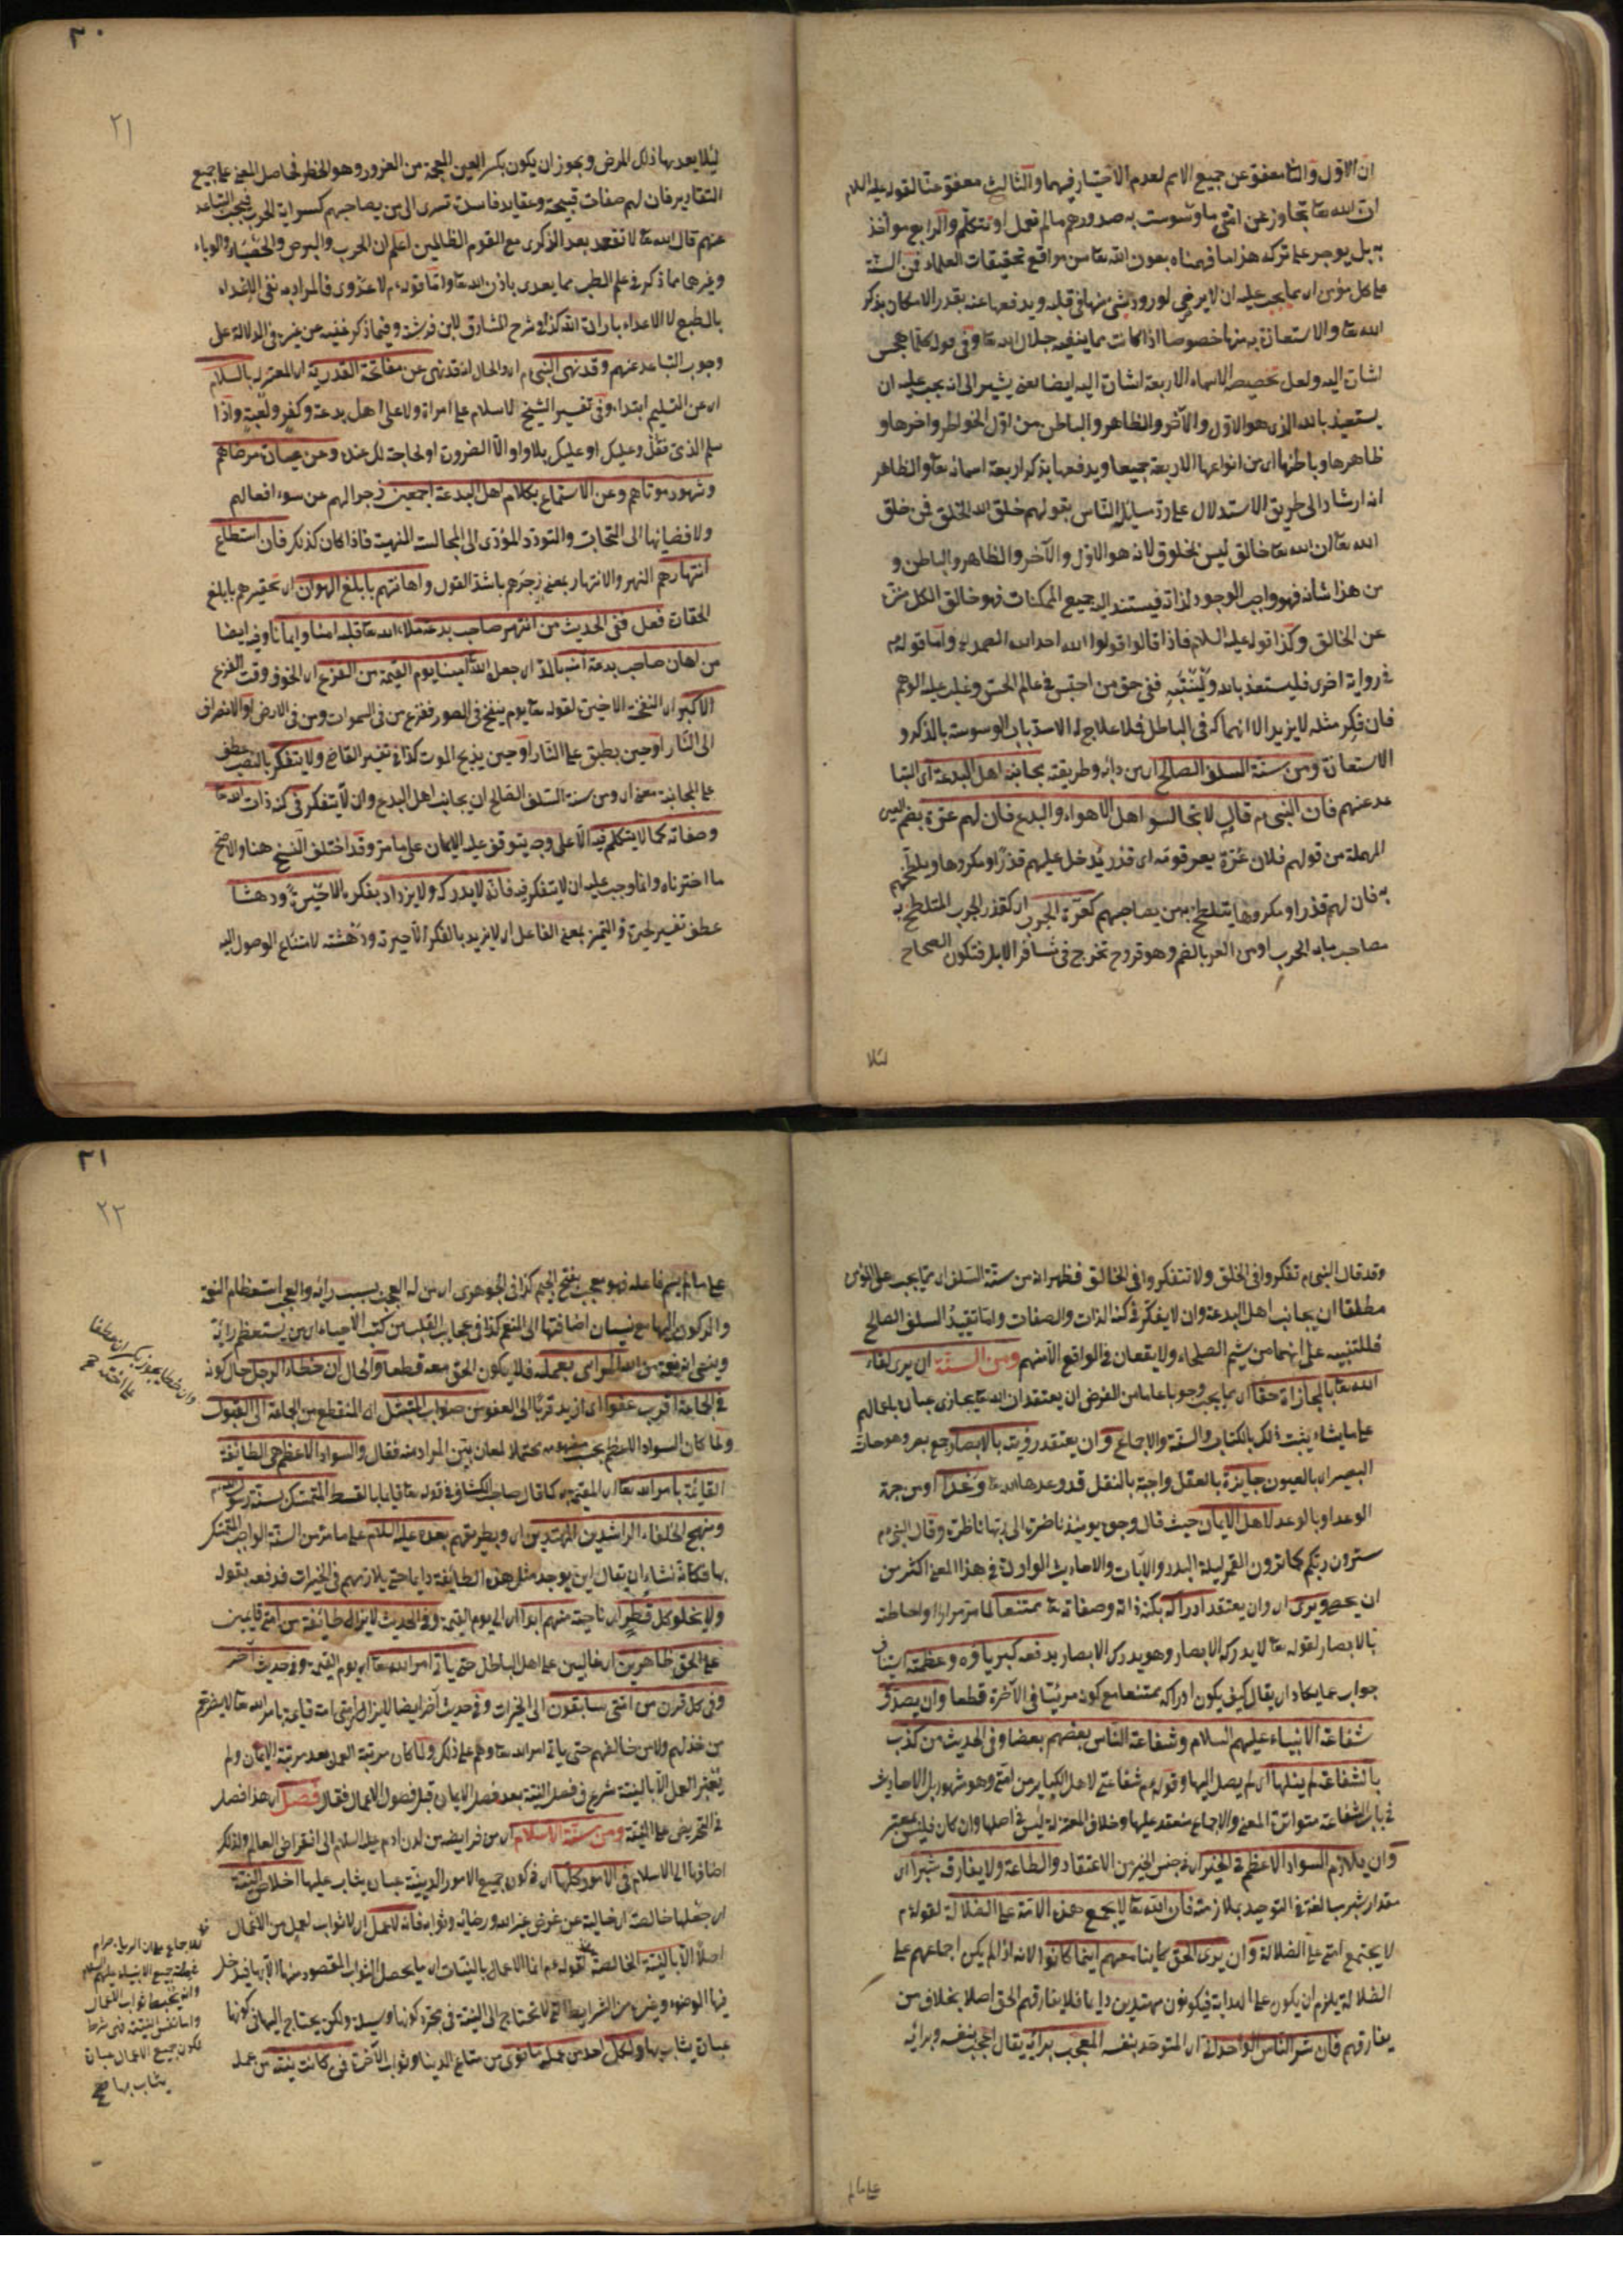 ان الاول والثا معفو عن جميع الامم لعدم الاختيار فيهما والثالث معفو عنا لقوله عليه السلام
ان الله تعا تجاوز عن امتي ما وسوست به صدورهم ما لم تعمل او تتكلم والرابع مواخذ
به بل يوجر على تركه هذا ما فهمناه بعون الله تعا من مواقع تحقيقات العلماء فمن السنة
على كل مؤمن اى مما يجب عليه ان لا يرضى لورود شئ منها في قلبه ويدفعها عنه بقدر الامكان بذكر
الله تعا والاستعاذة به منها خصوصا اذا كانت مما ينفيه جلال الله تعا وفي قوله كلما هجس
اشارة اليه ولعل تخصيص الاسماء الاربعة اشارة اليه ايضا يعنى يشير الى انه يجب عليه ان
يستعيذ بالله الذى هو الاول والآخر والظاهر والباطن من اول الخواطر واخرها و
ظاهرها وباطنها اى من انواعها الاربعة جميعا ويدفعها بذكر اربعة اسمائه تعا والظاهر
انه ارشاد الى طريق الاستدلال على رد سائل الناس بقولهم خلق الله الخلق فمن خلق
الله تعا ان الله تعا خالق ليس بمخلوق لانه هو الاول والآخر والظاهر والباطن و
من هذا شانه فهو واجب الوجود لذاته فيستند اليه جميع الممكنات فهو خالق الكل منزه
عن الخالق وكذا قوله عليه السلام فاذا قالوا قولوا الله احد الله الصمد اه واما قوله عم
في رواية اخرى فليستعذ بالله ولينته ففي حق من احتبس في عالم الحس وغلب عليه الوهم
فان فكر مثله لا يزيد الا انهماكه في الباطل فلا علاج له الا سد باب الوسوسة بالذكر و
الاستعاذة ومن سنة السلف الصالح اى من دابه وطريقته مجانبة اهل البدعة اى التبا
عد عنهم فان النبى عم قال لا تجالسوا اهل الاهواء والبدع فان لهم عرة بضم العين
المهملة من قولهم فلان عرة يعر قومه اى قذر يدخل عليهم قذرا ومكروها ويلطخهم
به فان لهم قذرا ومكروها يتلطخ به من يصاحبهم كعرة الجرب اى كقذر الجرب المتلطخ به
مصاحب باب الجرب او من العر بالضم وهو قروح تخرج في مشافر الابل فتكوى الصحاح
لئلا
٢٠
٢١
لئلا يعديها ذلك المرض ويجوز ان يكون بكسر العين المعجمة من الغرور وهو الخطر فحاصل المعنى على جميع
التقادير فان لهم صفات قبيحة وعقايد فاسدة تسرى الى من يصاحبهم كسراية الجرب فيجب التباعد
عنهم قال الله تعا لا تقعد بعد الذكرى مع القوم الظالمين اعلم ان الجرب والبرص والحصبة والوباء
وغيرها مما ذكر في علم الطب مما يعدى باذن الله تعا واما قوله عم لا عدوى فالمراد به نفى الاعداء
بالطبع لا الاعداء بارادة الله كذا في شرح المشارق لابن فرشته وفيما ذكر غنية عن غيره في الدلالة على
وجوب التباعد عنهم وقد نهى النبى عم اى والحال انه قد نهى عن مفاتحة القدرية اى المعتزلة بالسلام
اى عن التسليم ابتداء وفي تفسير الشيخ لا سلام على امراة ولا على اهل بدعة وكفر ولعبة واذا
سلم الذمى فقل وعليك او عليك بلا واو الا الضرورة او لحاجة لك عنده وعن عيادة مرضاهم
وشهود موتاهم وعن الاستماع بكلام اهل البدعة اجمعين زجرا لهم عن سوء افعالهم
ولافضائها الى التحابب والتودد المؤدى الى المجالسة المنهية فاذا كان كذلك فان استطاع
انتهارهم النهر والانتهار بمعنى زجرهم باشد القول واهانتهم بابلغ الهوان اى تحقيرهم بابلغ
الحقارة فعل ففى الحديث من انتهر صاحب بدعة ملاء الله تعا قلبه امنا وايمانا وفيه ايضا
من اهان صاحب بدعة آمنه بالمد اى جعله الله آمنا يوم القيمة من الفزع اى الخوف وقت الفزع
الاكبر اى النفخة الاخيرة لقوله تعا يوم ينفخ في الصور ففزع من فى السموات ومن فى الارض او الانصراف
الى النار او حين يطبق على النار او حين يذبح الموت كذا في تفسير القاضى ولا يتفكر بالنصب عطف
على المجانبة معنى اى ومن سنة السلف الصالح ان يجانب اهل البدع وان لا يتفكر فى كنه ذات الله تعا
وصفاته كما لا يتكلم فيه الا على وجه يتوقف عليه الايمان على ما مر وقد اختلف النسخ هنا والاصح
ما اخترناه وانما وجب عليه ان لا يتفكر فيه فانه لا يدركه ولا يزداد بفكره الا حيرة ودهشا
عطف تفسير لحيرة والتميز بمعنى الفاعل اى لا يزيد بالفكر الا حيرته ودهشته لامتناع الوصول اليه
وقد قال النبى عم تفكروا فى الخلق ولا تتفكروا فى الخالق فظهر انه من سنة السلف اى مما يجب على المؤمن
مطلقا ان يجانب اهل البدعة وان لا يفكر في كنه الذات والصفات واما تقييد السلف الصالح
فللتنبيه على انهما من شيم الصلحاء ولا يقعان فى الواقع الا منهم ومن السنة ان يرى لقاء
الله تعا بالمجازاة حقا اى مما يجب وجوبا عاما من الفرض ان يعتقد ان الله تعا يجازى عباده باعمالهم
على ما يشاء يثبت ذلك بالكتاب والسنة والاجماع وان يعتقد رؤيته بالابصار جمع بصر وهو حاسة
البصر اى بالعيون جايزة بالعقل واجبة بالنقل قد وعدها الله تعا وعدا او من جهة
الوعد او بالوعد لاهل الايمان حيث قال وجوه يومئذ ناضرة الى ربها ناظرة وقال النبى عم
سترون ربكم كما ترون القمر ليلة البدر والآيات والاحاديث الواردة في هذا المعنى اكثر من
ان يحصى ويرى اى وان يعتقد ادراكه بكنه ذاته وصفاته تعا ممتنعا لما مر مرارا ولاحاطته
بالابصار لقوله تعا لا يدركه الابصار وهو يدرك الابصار يدفعه كبرياؤه وعظمته استيناف
جواب عما يكاد ان يقال كيف يكون ادراكه ممتنعا مع كونه مرئيا في الآخرة قطعا وان يصدق
شفاعة الانبياء عليهم السلام وشفاعة الناس بعضهم بعضا وفى الحديث من كذب
بالشفاعة لم ينلها اى لم يصل اليها وقوله عم شفاعتى لاهل الكبائر من امتى وهو مشهور بل الاحاديث
في باب الشفاعة متواترة المعنى والاجماع منعقد عليها وخلاف المعتزلة ليس في اصلها وان كان فليس بمعتبر
وان يلازم السواد الاعظم في الخير اى في جنس الخير من الاعتقاد والطاعة ولا يفارقه شبرا اى
مقدار شبر مبالغة في التوحيد بملازمته فان الله تعا لا يجمع هذه الامة على الضلالة لقوله عم
لا يجتمع امتى على الضلالة وان يرى الحق كاينا معهم اينما كانوا لانه اذا لم يكن اجماعهم على
الضلالة يلزم ان يكون على الهداية فيكونون مهتدين دايما فلا يفارقهم الحق اصلا بخلاف من
يفارقهم فان شر الناس الواحدانى اى المتوحد بنفسه المعجب برائه يقال اعجب بنفسه وبرائه
على ما لم
٢١
٢٢
على ما لم يسم فاعله فهو معجب بفتح الجيم كذا فى الجوهرى اى من له العجب بسبب رائه والعجب استعظام النعمة
والركون اليها مع نسيان اضافتها الى المنعم كذا في عجايب القلب من كتب الاحياء اى من يستعظم رائه
معه قطعا والحال ان خطاء الرجل حال كونه
في الجماعة اقرب عفوا اى ازيد قربا الى العفو من صواب المتبتل اى المنقطع من الجماعة الى القبول
ولما كان السواد الاعظم بحسب مفهومه محتملا لمعان بين المراد منه فقال والسواد الاعظم هى الطايفة
القائمة بامر الله تعا اى المقيمة به كما قال صاحب الكشاف في قوله تعا قايما بالقسط المتمسك بسنة رسول الله عم
ومنهج الخلفاء الراشدين المهتدين اى وبطريقهم بعده عليه السلام على ما مر من السنة الواجب التمسك
بها فكانه نشاء ان يقال اين يوجد مثل هذه الطائفة دايما حتى يلازمهم فى الخيرات فدفعه بقوله
ولا يخلو كل قطر اى ناحية منهم ابدا اى الى يوم القيمة وفى الحديث لا يزال طائفة من امتى قايمين
على الحق ظاهرين اى غالبين على اهل الباطل حتى ياتى امر الله تعا اى يوم القيمة وفى حديث آخر
وفى كل قرن من امتى سابقون الى الخيرات وفى حديث آخر ايضا لا يزال من امتى امة قايمة بامر الله تعا لا يضرهم
من خذلهم ولا من خالفهم حتى ياتى امر الله تعا وهم على ذلك ولما كان مرتبة العمل بعد مرتبة الايمان ولم
يعتبر العمل الا بالنية شرع فى فصل النية بعد فصل الايمان قبل فصول الاعمال فقال فصل اى هذا فصل
في التحريض على النية ومن سنة الاسلام اى من فرايضه من لدن ادم عليه السلام الى انقراض العالم ولذلك
اضافها الى الاسلام فى الامور كلها اى في كون جميع الامور الدينية عبادة يثاب عليها اخلاص النية
اى جعلها خالصة اى خالية عن غرض غير الله ورضائه وثوابه فانه لا عمل اى لا ثواب لعمل من الاعمال
اصلا الا بالنية الخالصة لقوله عم انما الاعمال بالنيات اى ما يحصل الثواب المقصود منها الا بها فيدخل
فيها الوضوء وغيره من الشرايط التى لا تحتاج الى النية فى مجرد كونها وسيلة ولكن يحتاج اليها فى كونها
عبادة يثاب بها ولكل احد من عمله ما نوى من متاع الدنيا وثواب الآخرة فمن كانت نيته من عمله
وان خطا يجوز بكسر ان عطفا
على
غفلة جميع الانبياء عليهم السلام
وانه يحبط ثواب الاعمال
واما نفس النية فهى شرط
لكون جميع الاعمال عبادة
يثاب بها صح